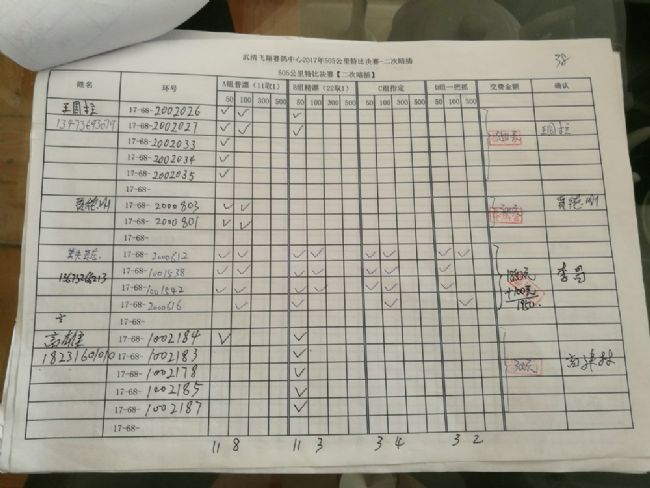 38
武清飞翔赛鸽中心2017年505公里特比决赛-二次暗插
505公里特比决赛【二次暗插】
姓名 环号 A组普漂(11取1) B组精漂(22取1) C组指定 D组一把抓 交费金额 确认
50 100 300 500 50 100 300 500 50 100 300 500 50 100 300
17-68-2002026 ✓ ✓ ✓
17-68-2002027 ✓ ✓ ✓
17-68-2002033 ✓
17-68-2002034 ✓
17-68-2002035 ✓
17-68-
17-68-2000803 ✓ ✓
17-68-2000801 ✓ ✓
17-68-
17-68-2000612 ✓ ✓ ✓ ✓ ✓ ✓ ✓ ✓
17-68-1001838 ✓ ✓ ✓ ✓ ✓ ✓ ✓
17-68-1001542 ✓ ✓ ✓ ✓ ✓ ✓ ✓
17-68-2000616 ✓ ✓ ✓
+100元
1950.
17-68-
17-68-1002184 ✓ ✓
18231601010 17-68-1002183 ✓
17-68-1002178 ✓
17-68-1002185 ✓
17-68-1002187 ✓
17-68-
11 8 11 3 3 4 3 2